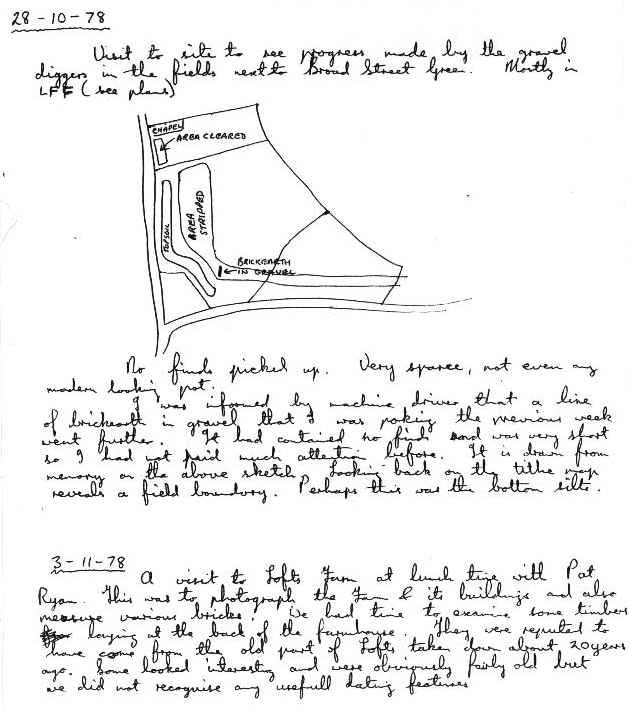 28-10-78
Visit to site to see progress made by the gravel
diggers in the fields next to Broad Street Green. Mostly in
LFF (see plans)
CHAPEL
AREA CLEARED
AREA STRIPPED
TOPSOIL
BRICKEARTH
IN GRAVEL
No finds picked up. Very sparce, not even any
modern looking pot.
I was informed by machine driver that a line
of brickearth in gravel that I was poking the previous week
went further. It had contained no finds and was very short
so I had not paid much attention before. It is drawn from
memory on the above sketch. Looking back on the tithe map
reveals a field boundary. Perhaps this was the bottom silts.
3-11-78
A visit to Lofts Farm at lunch time with Pat
Ryan. This was to photograph the Farm & its buildings and also
measure various bricks. We had time to examine some timbers
laying at the back of the farmhouse. They were reputed to
have come from the old part of Lofts taken down about 20 years
ago. Some looked interesting and were obviously fairly old but
we did not recognise any usefull dating features